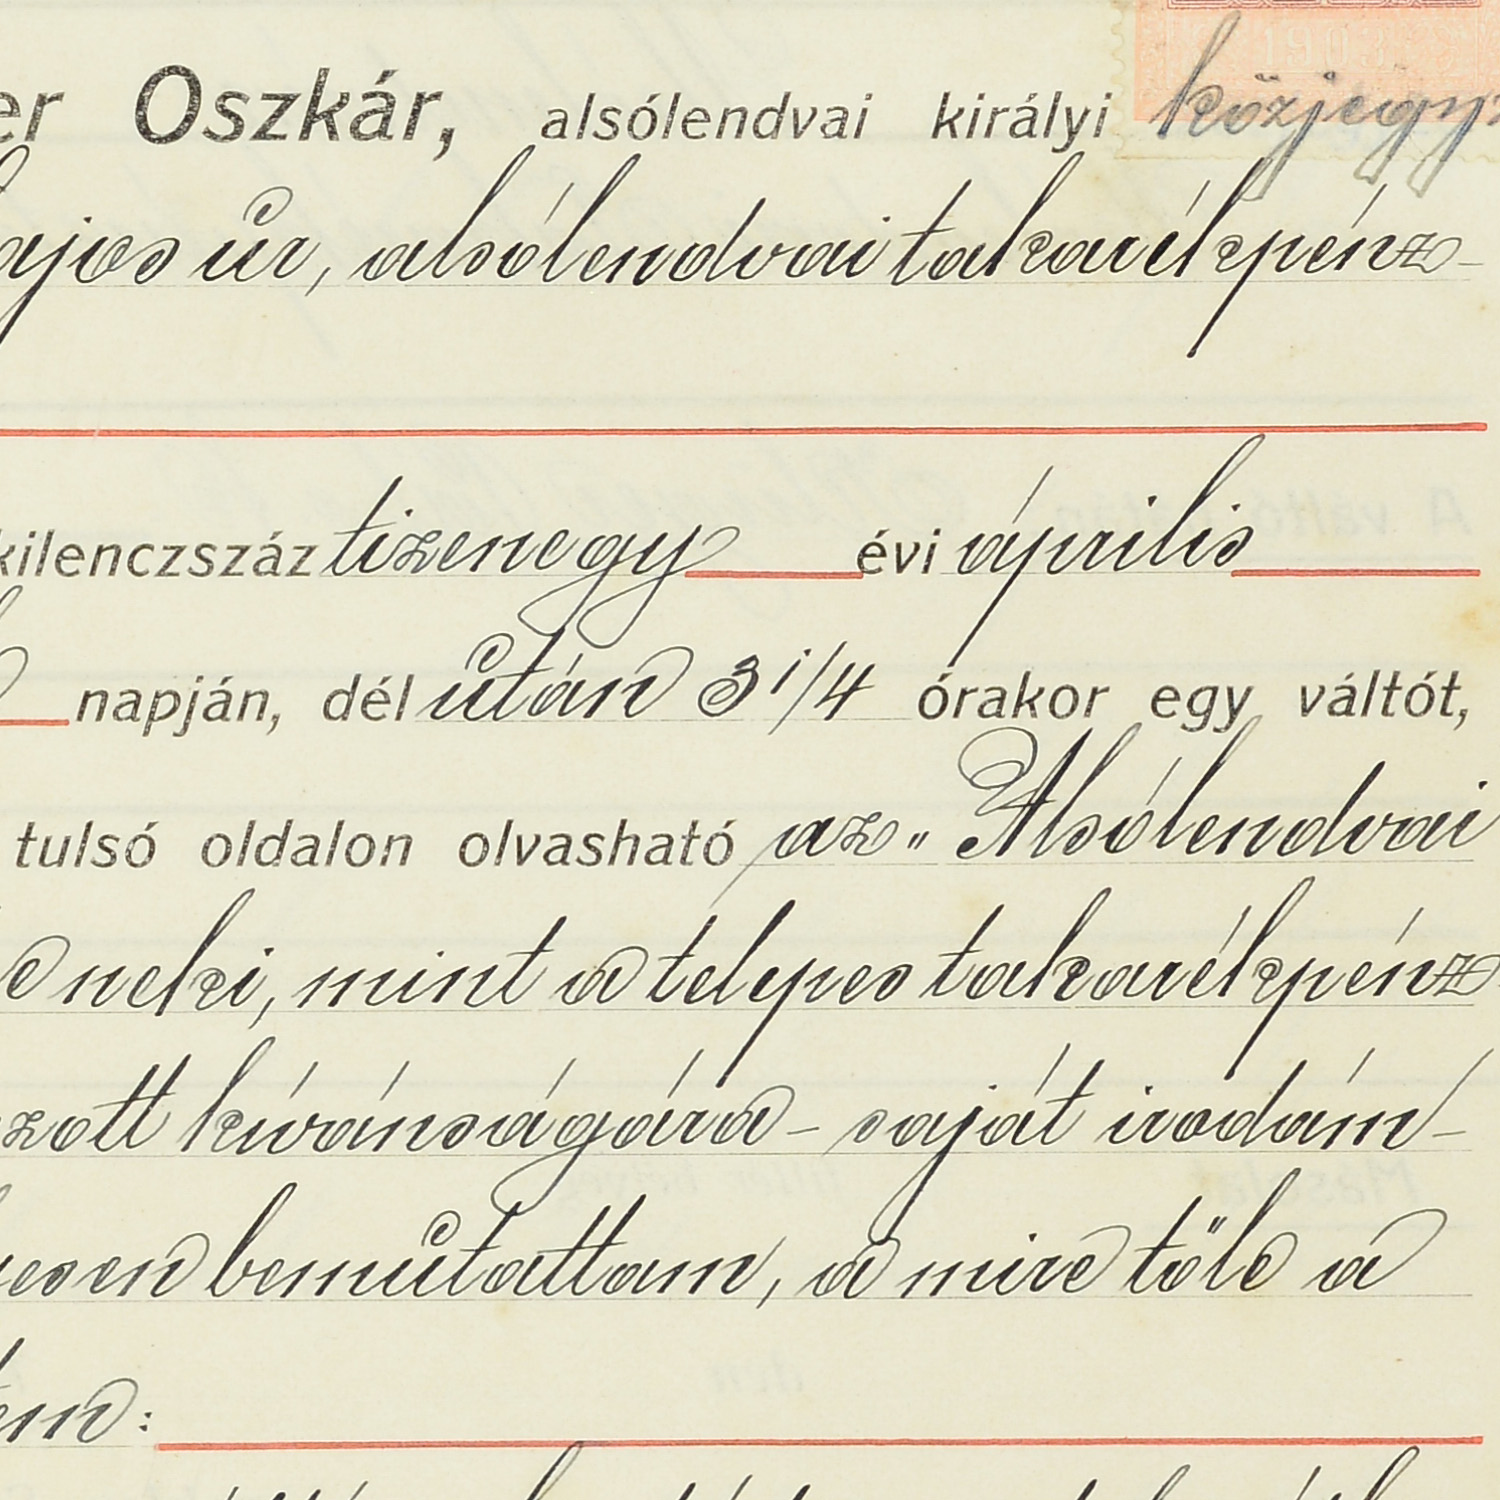 er Oszkár, alsólendvai királyi közjegyz
ajos úr, alsólendvai takarékpénz-
kilenczszáz tizenegy évi április
napján, dél után 3 1/4 órakor egy váltót,
tulsó oldalon olvasható az „Alsólendvai
neki, mint a telepes takarékpénz
zott kívánságára - saját irodám-
esen bemutattam, a mire tőle a
tem: